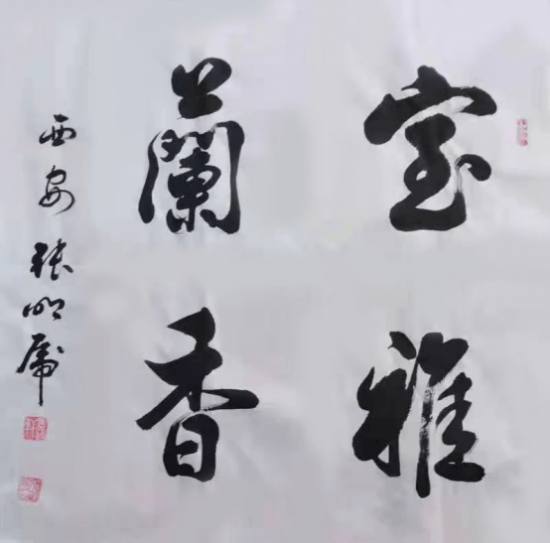 室雅
蘭香
西安張明虎